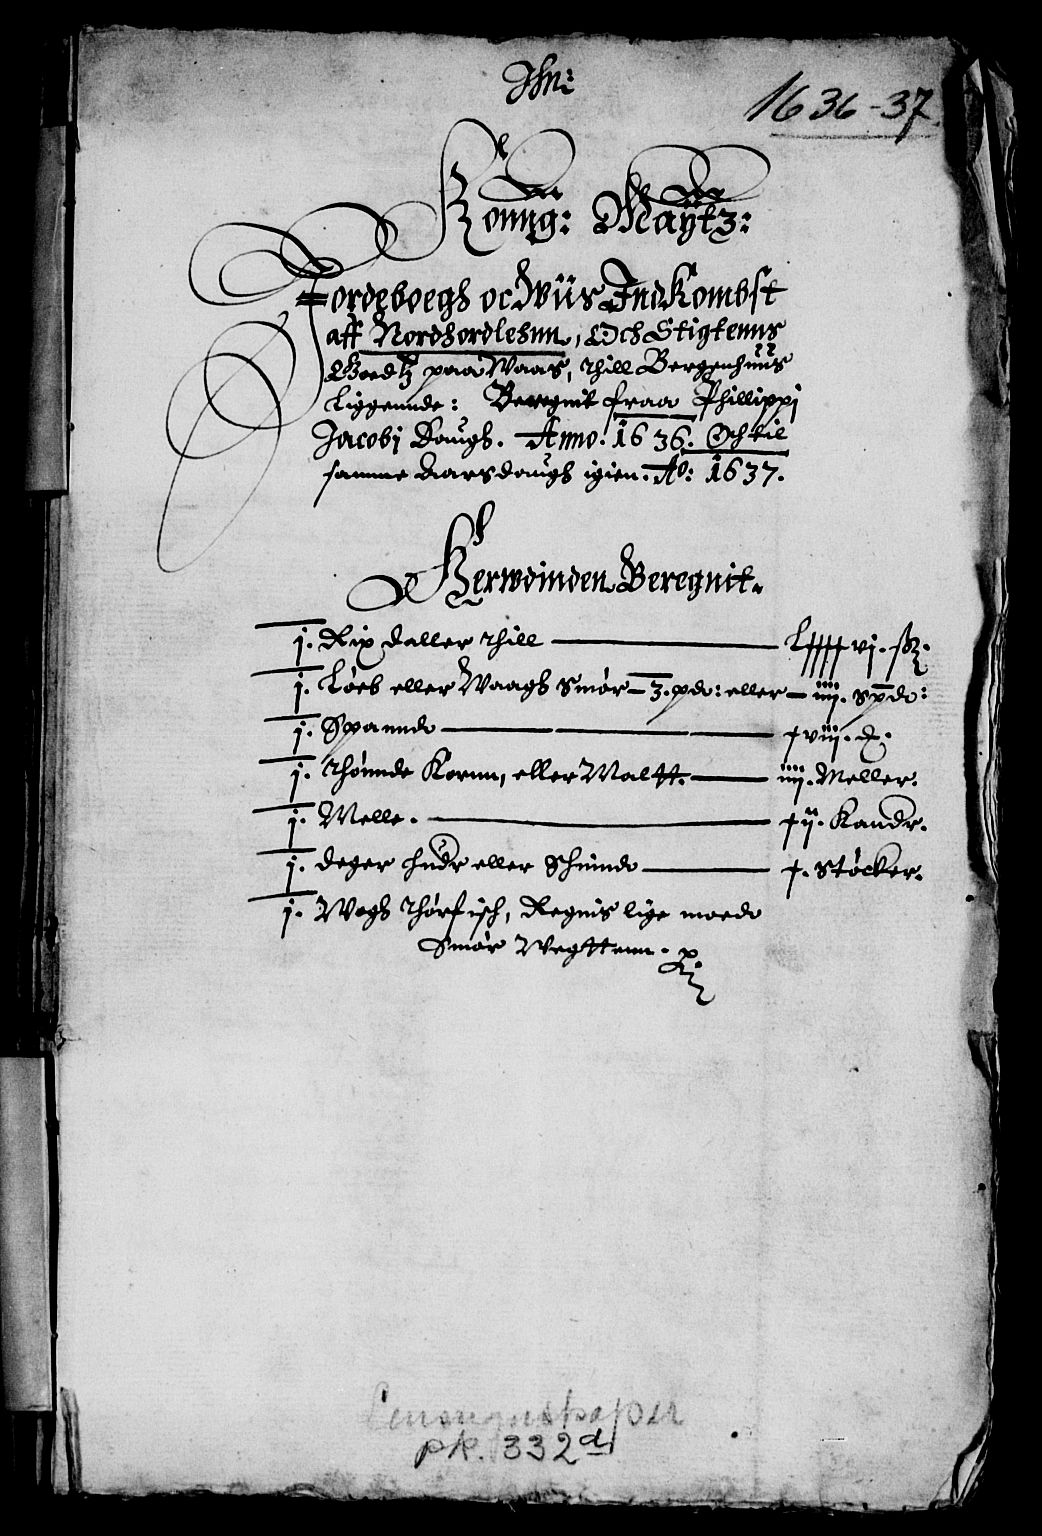 Jhn:
1636-37.
Konng: Maÿtz:
Jordeboegs oc Wiis IndKombst
aff Nordhordlehnn, Och Stigtenns
Goedtz paa Waas, thill Bergenhuus
Liggennde: Beregnit fraa Phillippj
Jacobj Daugh. Anno. 1636. Och til
samme Aarsdaugh igien. Ao: 1637.
Herwdinden Beregnit.
j. Rix daller thill — Lxxxxvj. sk.
j. Løeb eller Waagh Smør — 3. pdr: eller — iiij. spdr:
j. Spannd — xviij. ₰.
j. thønnde Kornn, eller Maltt. — iiij. Meller.
j. Melle. — xij. Kandr.
j. deger hudr eller Schinnd — x. støcker.
j. Wogh thørfisch, Regnis lige moed
Smør Wegttenn.
Lensregnskaper
pk. 332 d